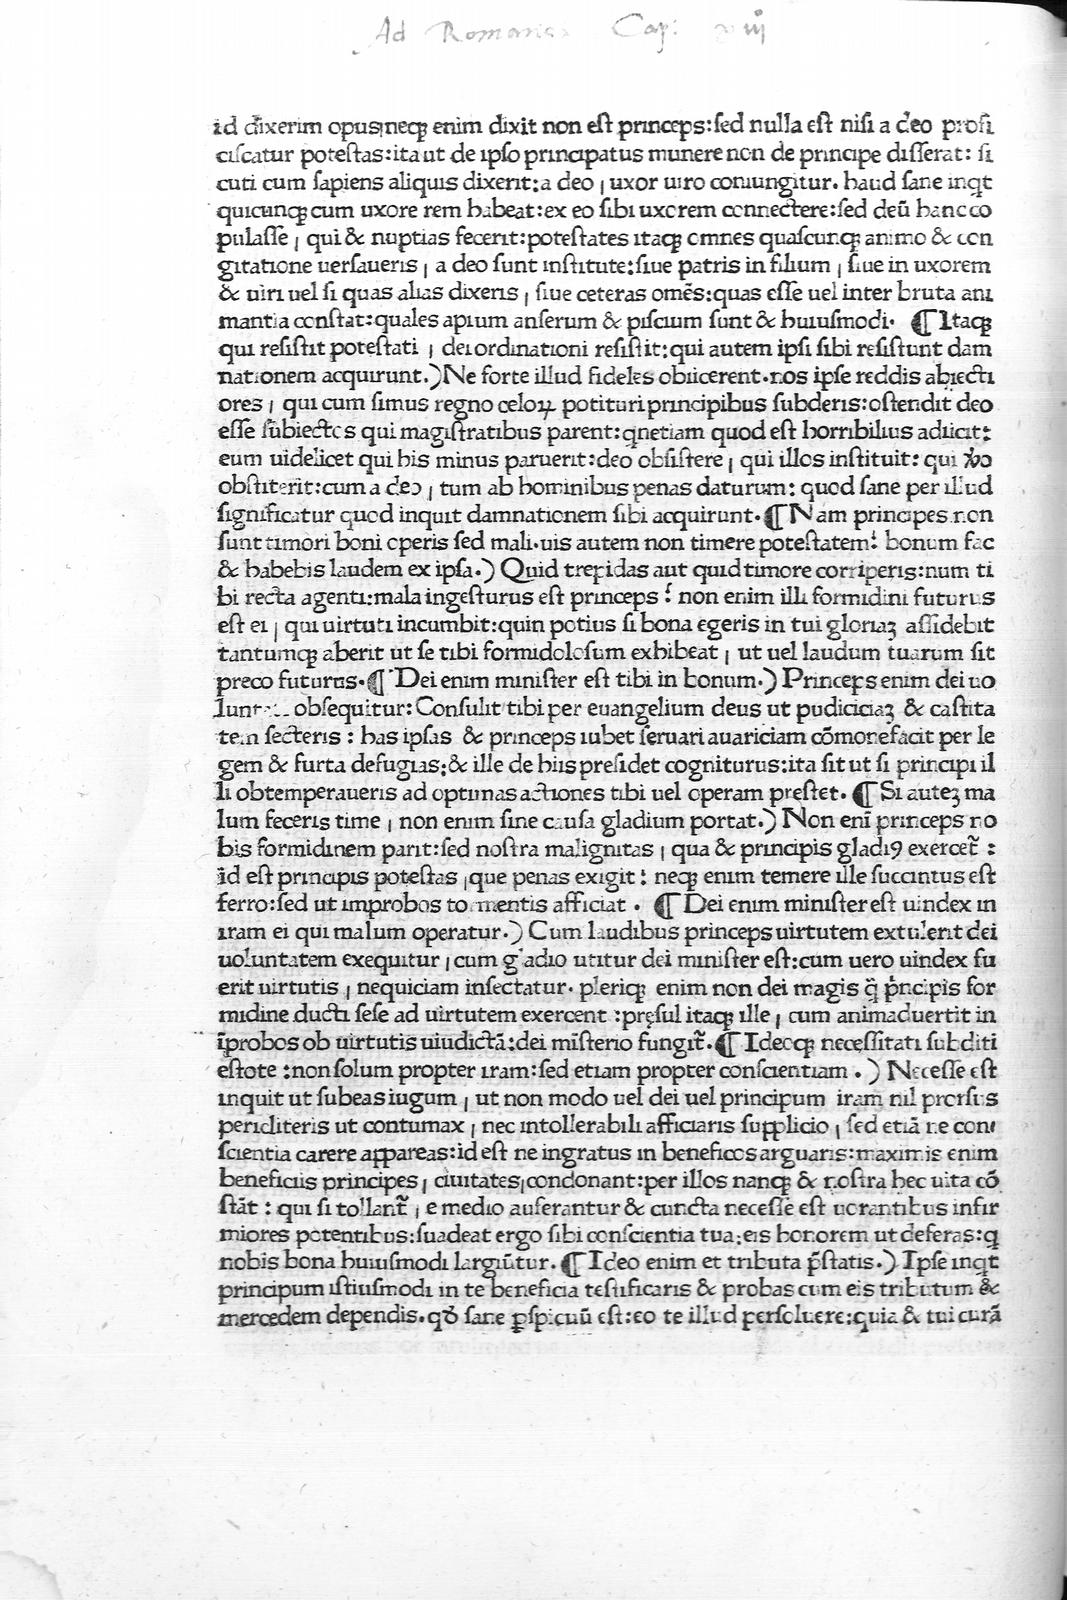 Ad Romanos Cap: xiii
id dixerim opus neqꝫ enim dixit non eſt princeps:ſed nulla eſt niſi a deo profi
ciſcatur poteſtas:ita ut de ipſo principatus munere non de principe diſſerat: ſi
cuti cum ſapiens aliquis dixerit:a deo / uxor uiro coniungitur. haud ſane inqt
quicunqꝫ cum uxore rem habeat:ex eo ſibi uxorem connectere:ſed deū hanc co
pulaſſe / qui & nuptias fecerit:poteſtates itaqꝫ omnes quaſcunqꝫ animo & con
gitatione uerſaueris / a deo ſunt inſtitute:ſiue patris in filium / ſiue in uxorem
& uiri uel ſi quas alias dixeris / ſiue ceteras omēs:quas eſſe uel inter bruta ani
mantia conſtat:quales apium anſerum & piſcium ſunt & huiuſmodi. ¶ Itaqꝫ
qui reſiſtit poteſtati / dei ordinationi reſiſtit:qui autem ipſi ſibi reſiſtunt dam
nationem acquirunt.) Ne forte illud fideles obiicerent.nos ipſe reddis abiecti
ores / qui cum ſimus regno celoꝝ potituri principibus ſubderis:oſtendit deo
eſſe ſubiectos qui magiſtratibus parent:qnetiam quod eſt horribilius adiicit:
eum uidelicet qui his minus paruerit:deo obſiſtere / qui illos inſtituit: qui
obſtiterit:cum a deo / tum ab hominibus penas daturum: quod ſane per illud
ſignificatur quod inquit damnationem ſibi acquirunt. ¶ Nam principes non
ſunt timori boni operis ſed mali.uis autem non timere poteſtatem? bonum fac
& habebis laudem ex ipſa.) Quid trepidas aut quid timore corriperis:num ti
bi recta agenti:mala ingeſturus eſt princeps ? non enim illi formidini futurus
eſt ei / qui uirtuti incumbit:quin potius ſi bona egeris in tui gloriaꝫ aſſidebit
tantumqꝫ aberit ut ſe tibi formidoloſum exhibeat / ut uel laudum tuarum ſit
preco futurus. ¶ Dei enim miniſter eſt tibi in bonum.) Princeps enim dei uo
lunt obſequitur: Conſulit tibi per euangelium deus ut pudiciciaꝫ & caſtita
tem ſecteris : has ipſas & princeps iubet ſeruari auariciam cōmonefacit per le
gem & furta defugias:& ille de hiis preſidet cogniturus:ita ſit ut ſi principi il
li obtemperaueris ad optimas actiones tibi uel operam preſtet. ¶ Si auteꝫ ma
lum feceris time / non enim ſine cauſa gladium portat.) Non eni princeps no
bis formidinem parit:ſed noſtra malignitas / qua & principis gladiꝰ exercet̃ :
id eſt principis poteſtas / que penas exigit : neqꝫ enim temere ille ſuccintus eſt
ferro:ſed ut improbos tormentis afficiat . ¶ Dei enim miniſter eſt uindex in
iram ei qui malum operatur.) Cum laudibus princeps uirtutem extulerit dei
uoluntatem exequitur / cum gladio utitur dei miniſter eſt:cum uero uindex fu
erit uirtutis / nequiciam inſectatur. pleriqꝫ enim non dei magis q̄ p̄ncipis for
midine ducti ſeſe ad uirtutem exercent :pręſul itaqꝫ ille / cum animaduertit in
īprobos ob uirtutis uiudictā:dei mīſterio fungit̃. ¶ Ideoqꝫ neceſſitati ſubditi
eſtote :non ſolum propter iram:ſed etiam propter conſcientiam . ) Neceſſe eſt
inquit ut ſubeas iugum / ut non modo uel dei uel principum iram nil prorſus
pericliteris ut contumax / nec intollerabili afficiaris ſupplicio / ſed etiā ne con
ſcientia carere appareas:id eſt ne ingratus in beneficos arguaris:maximis enim
beneficiis principes / ciuitates / condonant:per illos nanqꝫ & noſtra hec uita cō
ſtāt : qui ſi tollant̃ / e medio auferantur & cuncta neceſſe eſt uorantibus infir
miores potentibus:ſuadeat ergo ſibi conſcientia tua:eis honorem ut deferas:q
nobis bona huiuſmodi largiūtur. ¶ Ideo enim et tributa p̄ſtatis.) Ipſe inqt
principum iſtiuſmodi in te beneficia teſtificaris & probas cum eis tributum &
mercedem dependis. qđ ſane ꝑſpicuū eſt:eo te illud perſoluere:quia & tui curā